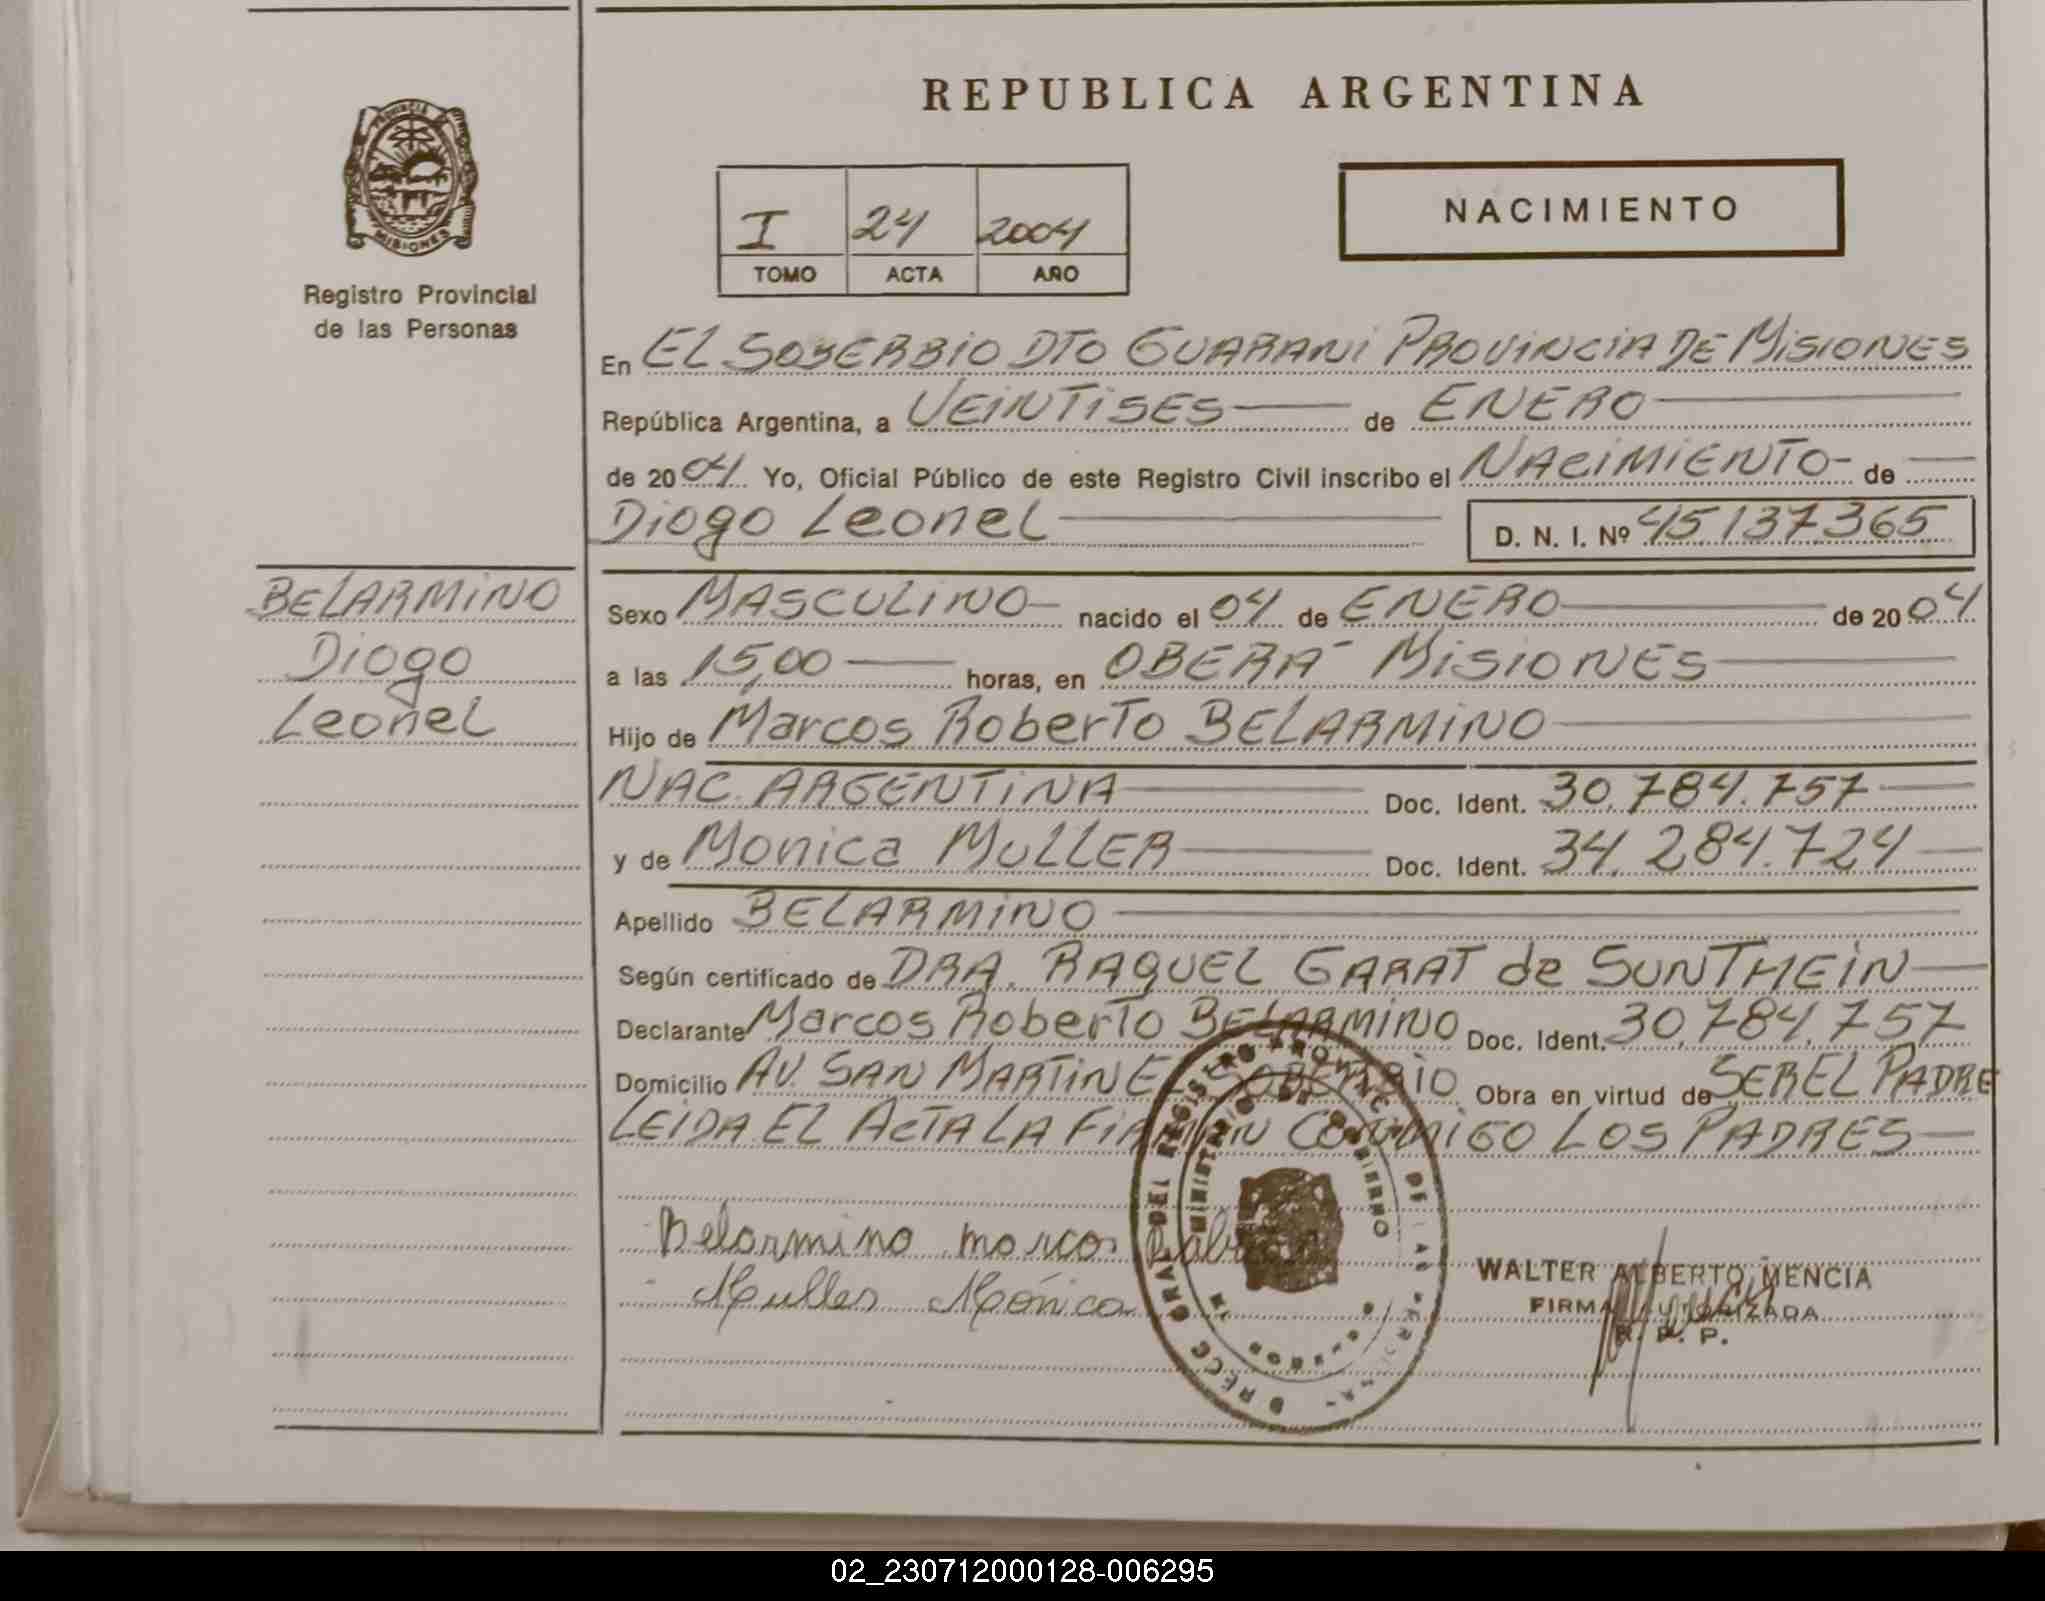 REPUBLICA ARGENTINA
PROVINCIA DE
MISIONES
Registro Provincial
de las Personas
I 24 2004
TOMO ACTA AÑO
NACIMIENTO
En EL SOBERBIO DTO GUARANI PROVINCIA DE MISIONES
República Argentina, a VEINTISES de ENERO
de 2004 Yo, Oficial Público de este Registro Civil inscribo el NACIMIENTO de
Diogo Leonel D. N. I. Nº 45137365
BELARMINO
Diogo
Leonel
Sexo MASCULINO nacido el 04 de ENERO de 2004
a las 15,00 horas, en OBERA MISIONES
Hijo de Marcos Roberto BELARMINO
NAC. ARGENTINA Doc. Ident. 30.784.757
y de Monica MULLER Doc. Ident. 34.284.724
Apellido BELARMINO
Según certificado de DRA. RAQUEL GARAT de SUNTHEIN
Declarante Marcos Roberto BELARMINO Doc. Ident. 30.784.757
Domicilio AV. SAN MARTIN EL SOBERBIO Obra en virtud de SER EL PADRE
LEIDA EL ACTA LA FIRMAN CONMIGO LOS PADRES
Belarmino marcos
Muller Mónica
DIRECC GRAL DEL REGISTRO PROVINCIAL DE LAS PERSONAS
MINISTERIO DE GOBIERNO
WALTER ALBERTO MENCIA
FIRMA AUTORIZADA
R. P. P.
02_230712000128-006295